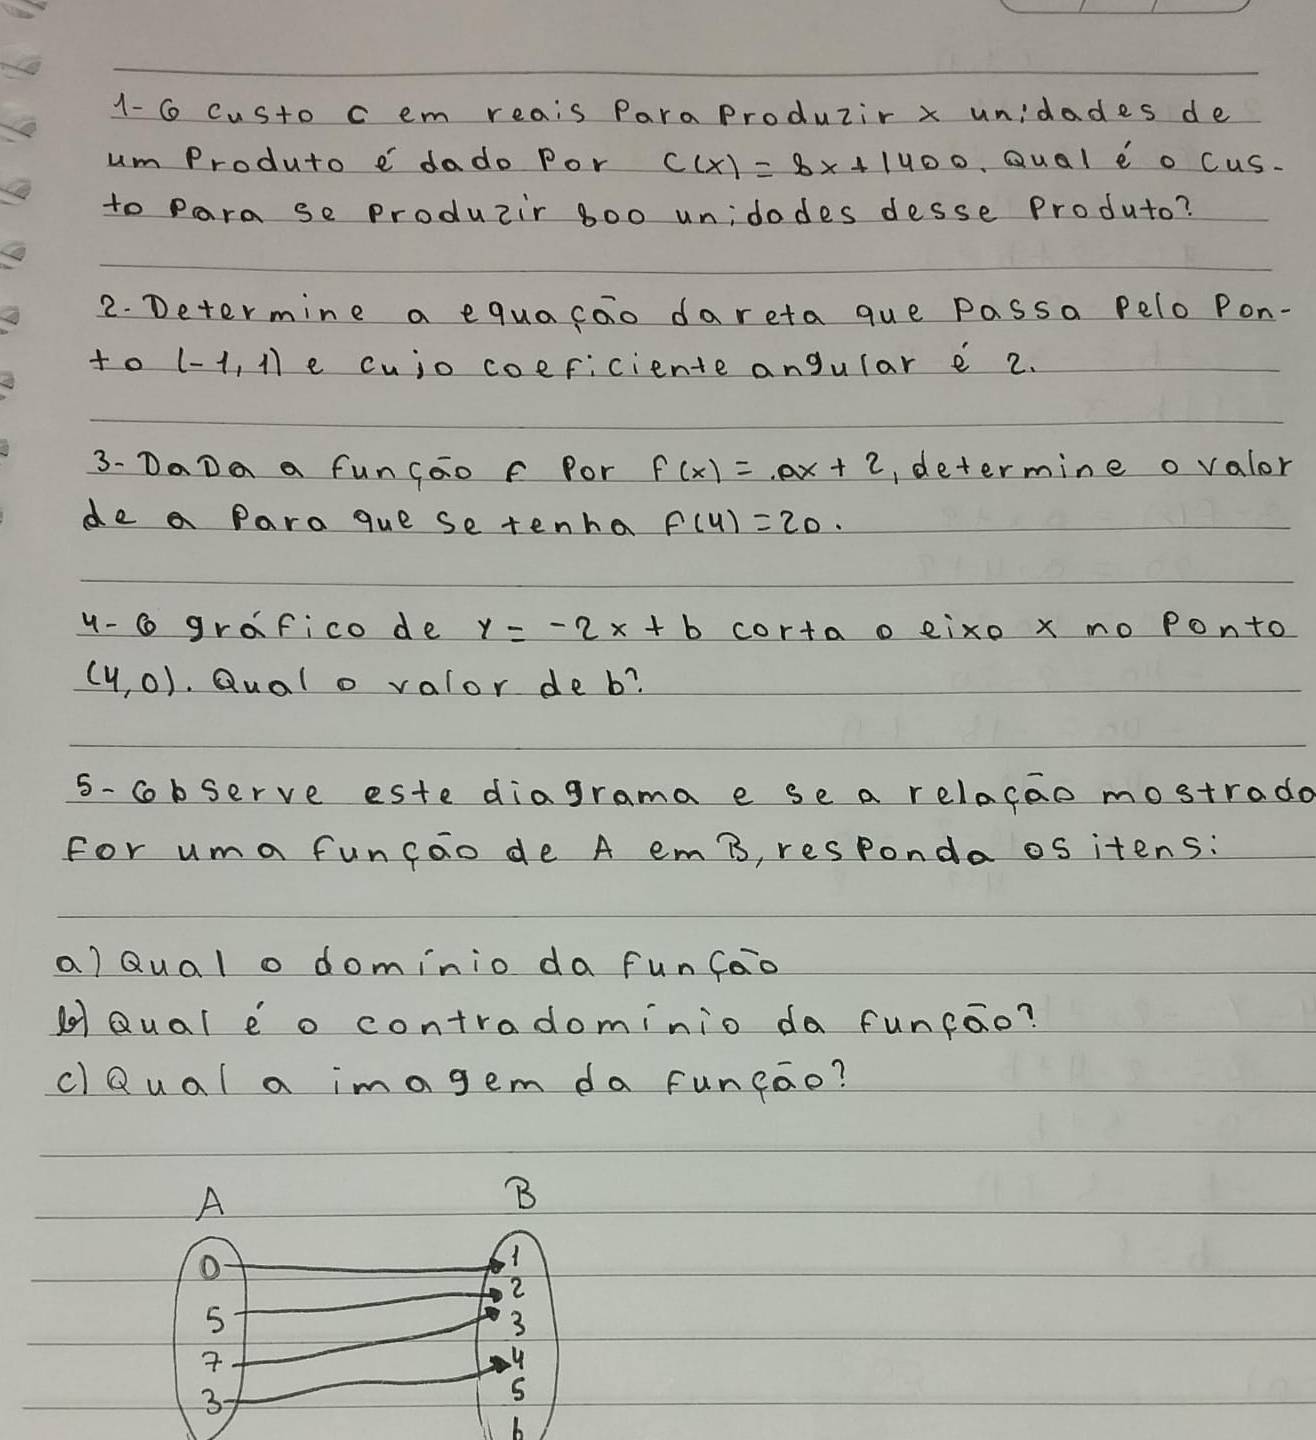 1- O custo C em reais Para Produzir x unidades de
um Produto é dado Por C(x) = 8x + 1400. Qual é o cus-
to Para se Produzir 800 unidades desse Produto?
2. Determine a equação da reta que Passa Pelo Pon-
to (-1, 1) e cujo coeficiente angular é 2.
3- DaDa a função f Por f(x) = ax + 2, determine o valor
de a Para que se tenha f(4) = 20.
4- O gráfico de Y = -2x + b corta o eixo x no Ponto
(4,0). Qual o valor de b?
5- Observe este diagrama e se a relação mostrada
For uma função de A em B, responda os itens:
a) Qual o domínio da Função
b) Qual é o contradomínio da função?
c) Qual a imagem da Função?
A B
0 1
2
5 3
7 4
3 5
6